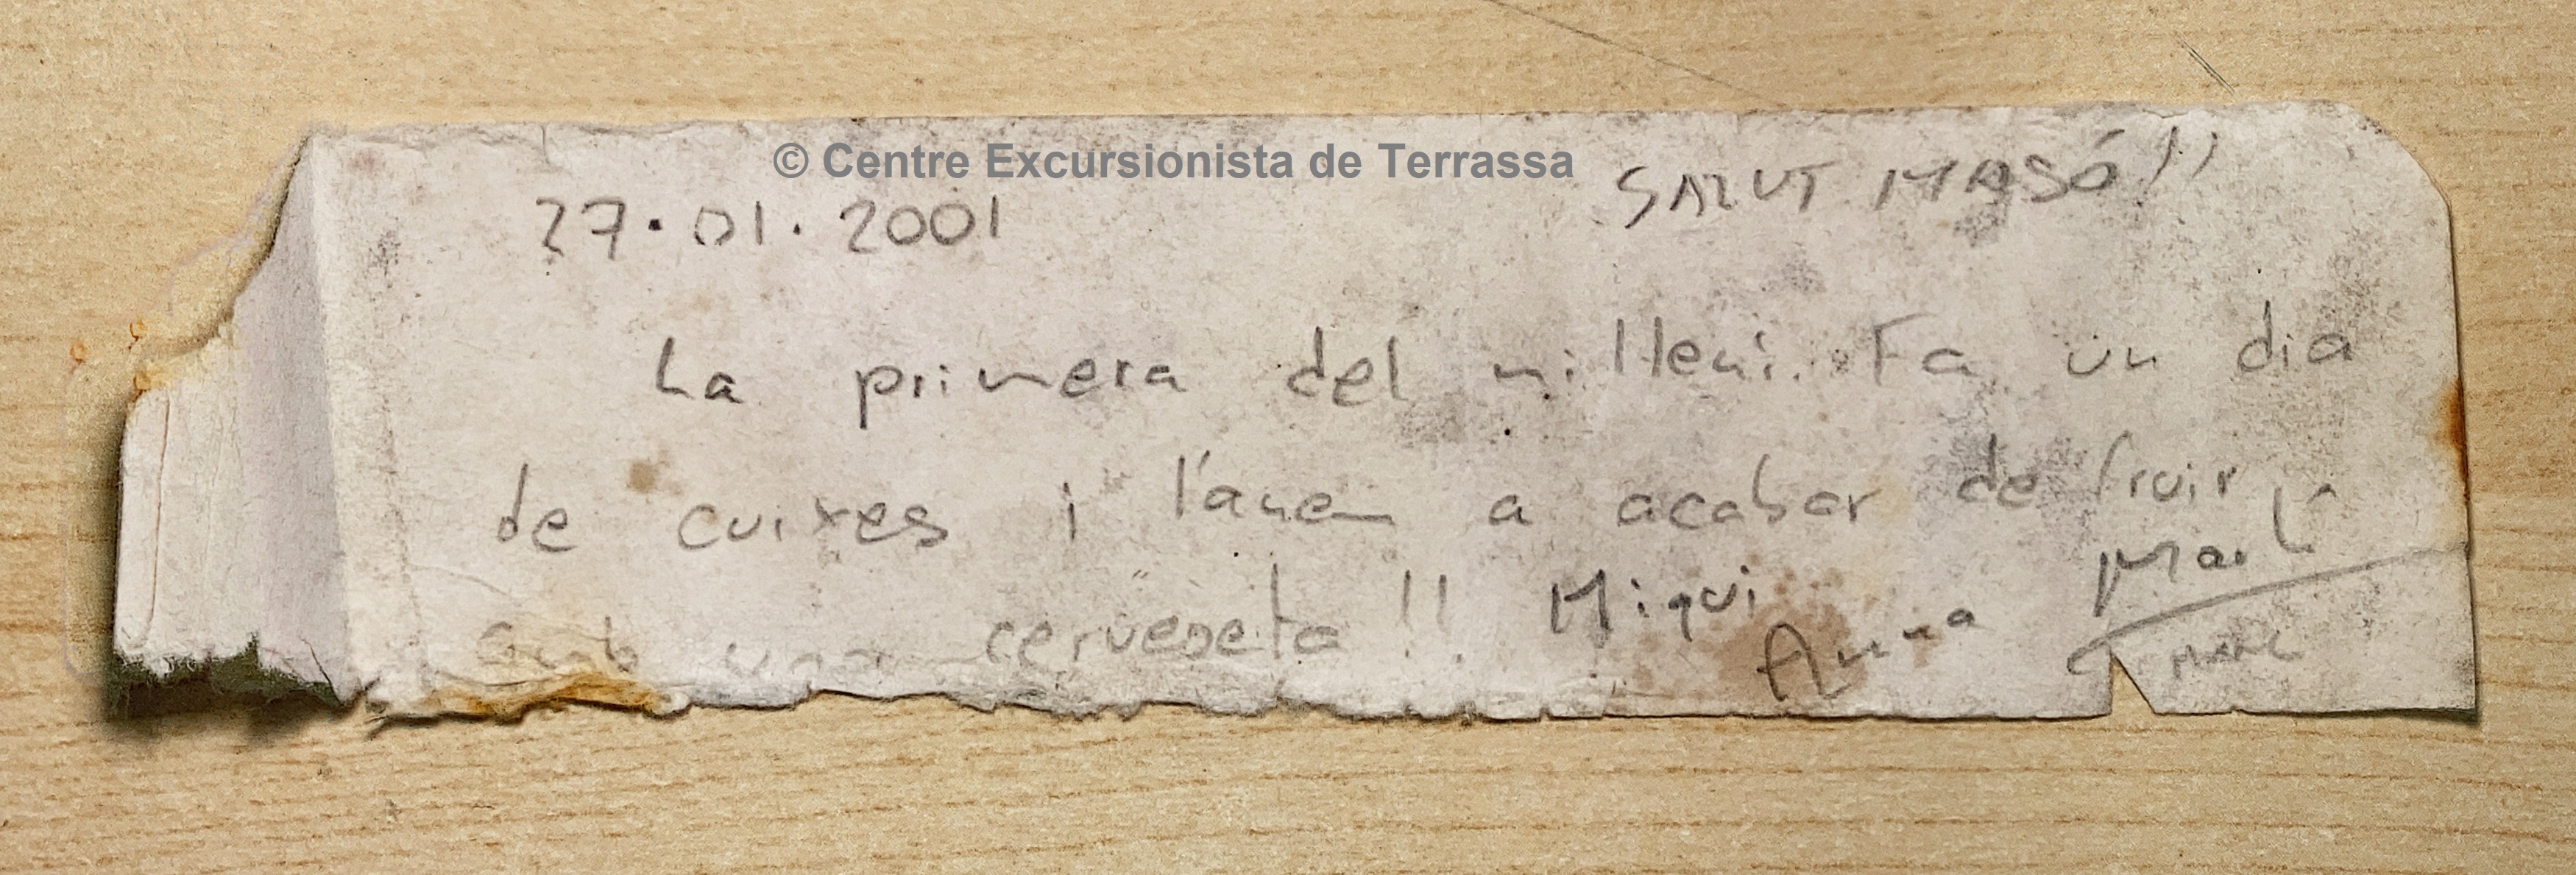 © Centre Excursionista de Terrassa
27.01.2001
SALUT MASÓ!!
La primera del mil·lleni. Fa un dia
de cuixes i l'anem a acabar de fruir
amb una cerveseta!! Miqui
Anna
Martí
MARC